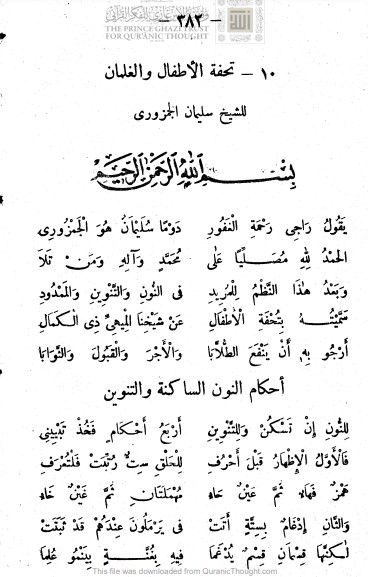 مؤسسة الأمير غازي للفكر القرآني
THE PRINCE GHAZI TRUST
FOR QUR'ANIC THOUGHT
— ٣٨٣ —
١٠ — تحفة الأطفال والغلمان
للشيخ سليمان الجمزورى
بِسْمِ اللهِ الرَّحْمَنِ الرَّحِيمِ
يَقُولُ رَاجِى رَحْمَةِ الْغَفُورِ دَوْمًا سُلَيْمَانُ هُوَ الْجَمْزُورِى
الحَمْدُ لِلهِ مُصَلِّيًا عَلَى مُحَمَّدٍ وَآلِهِ وَمَنْ تَلَا
وَبَعْدُ هٰذَا النَّظْمُ لِلْمُرِيدِ فى النُّونِ وَالتَّنْوِينِ وَالْمَدُودِ
سَمَّيْتُهُ بِتُحْفَةِ الْأَطْفَالِ عَنْ شَيْخِنَا الْمِيهِىِّ ذِى الْكَمَالِ
أَرْجُو بِهِ أَنْ يَنْفَعَ الطُّلَّابَا وَالْأَجْرَ وَالْقَبُولَ وَالثَّوَابَا
أحكام النون الساكنة والتنوين
لِلنُّونِ إِنْ تَسْكُنْ وَلِلتَّنْوِينِ أَرْبَعُ أَحْكَامٍ فَخُذْ تَبْيِينِى
فَالْأَوَّلُ الْإِظْهَارُ قَبْلَ أَحْرُفِ لِلْحَلْقِ سِتٌّ رُتِّبَتْ فَلْتُعْرَفِ
هَمْزٌ فَهَاءٌ ثُمَّ عَيْنٌ حَاء مُهْمَلَتَانِ ثُمَّ غَيْنٌ خَاء
وَالثَّانِ إِدْغَامٌ بِسِتَّةٍ أَتَتْ فى يَرْمَلُونَ عِنْدَهُمْ قَدْ ثَبَتَتْ
لٰكِنَّهَا قِسْمَانِ قِسْمٌ يُدْغَمَا فِيهِ بِغُنَّةٍ بِيَنْمُو عُلِمَا
This file was downloaded from QuranicThought.com